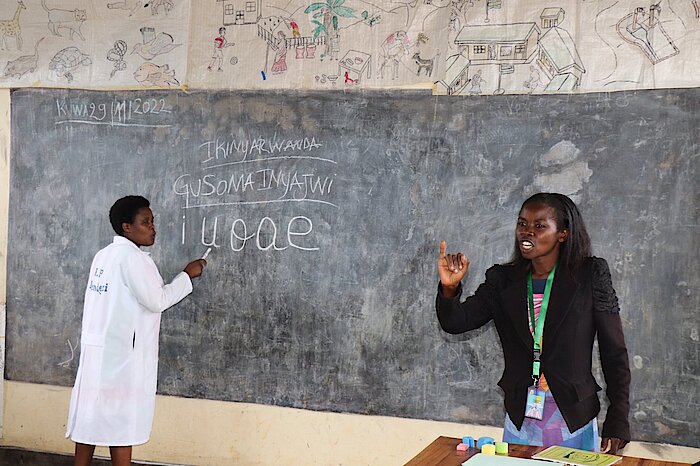 KUWA 29/11/2022
IKINYARWANDA
GUSOMA INYAJWI
i u o a e